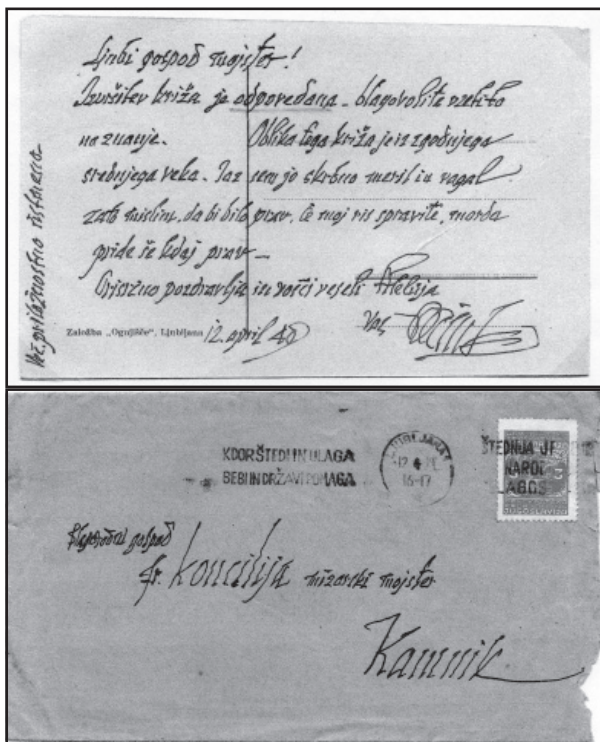 Ljubi gospod mojster!
Izvršitev križa je odpovedana – blagovolite vzeti to
na znanje. Oblika tega križa je iz zgodnjega
srednjega veka. Jaz sem jo skrbno meril in vagal
zato mislim, da bi bilo prav, če moj ris spravite, morda
pride še kdaj prav –
pozdravlja in vošči veselo
Založba „Ognjišče“, Ljubljana 12. april 40
Vaš
KDOR ŠTEDI IN ULAGA
SEBI IN DRŽAVI POMAGA
LJUBLJANA 1
16-17
ŠTEDNJA JE
NAROD
gospod
fr. Koncilija mizarski mojster
Kamnik